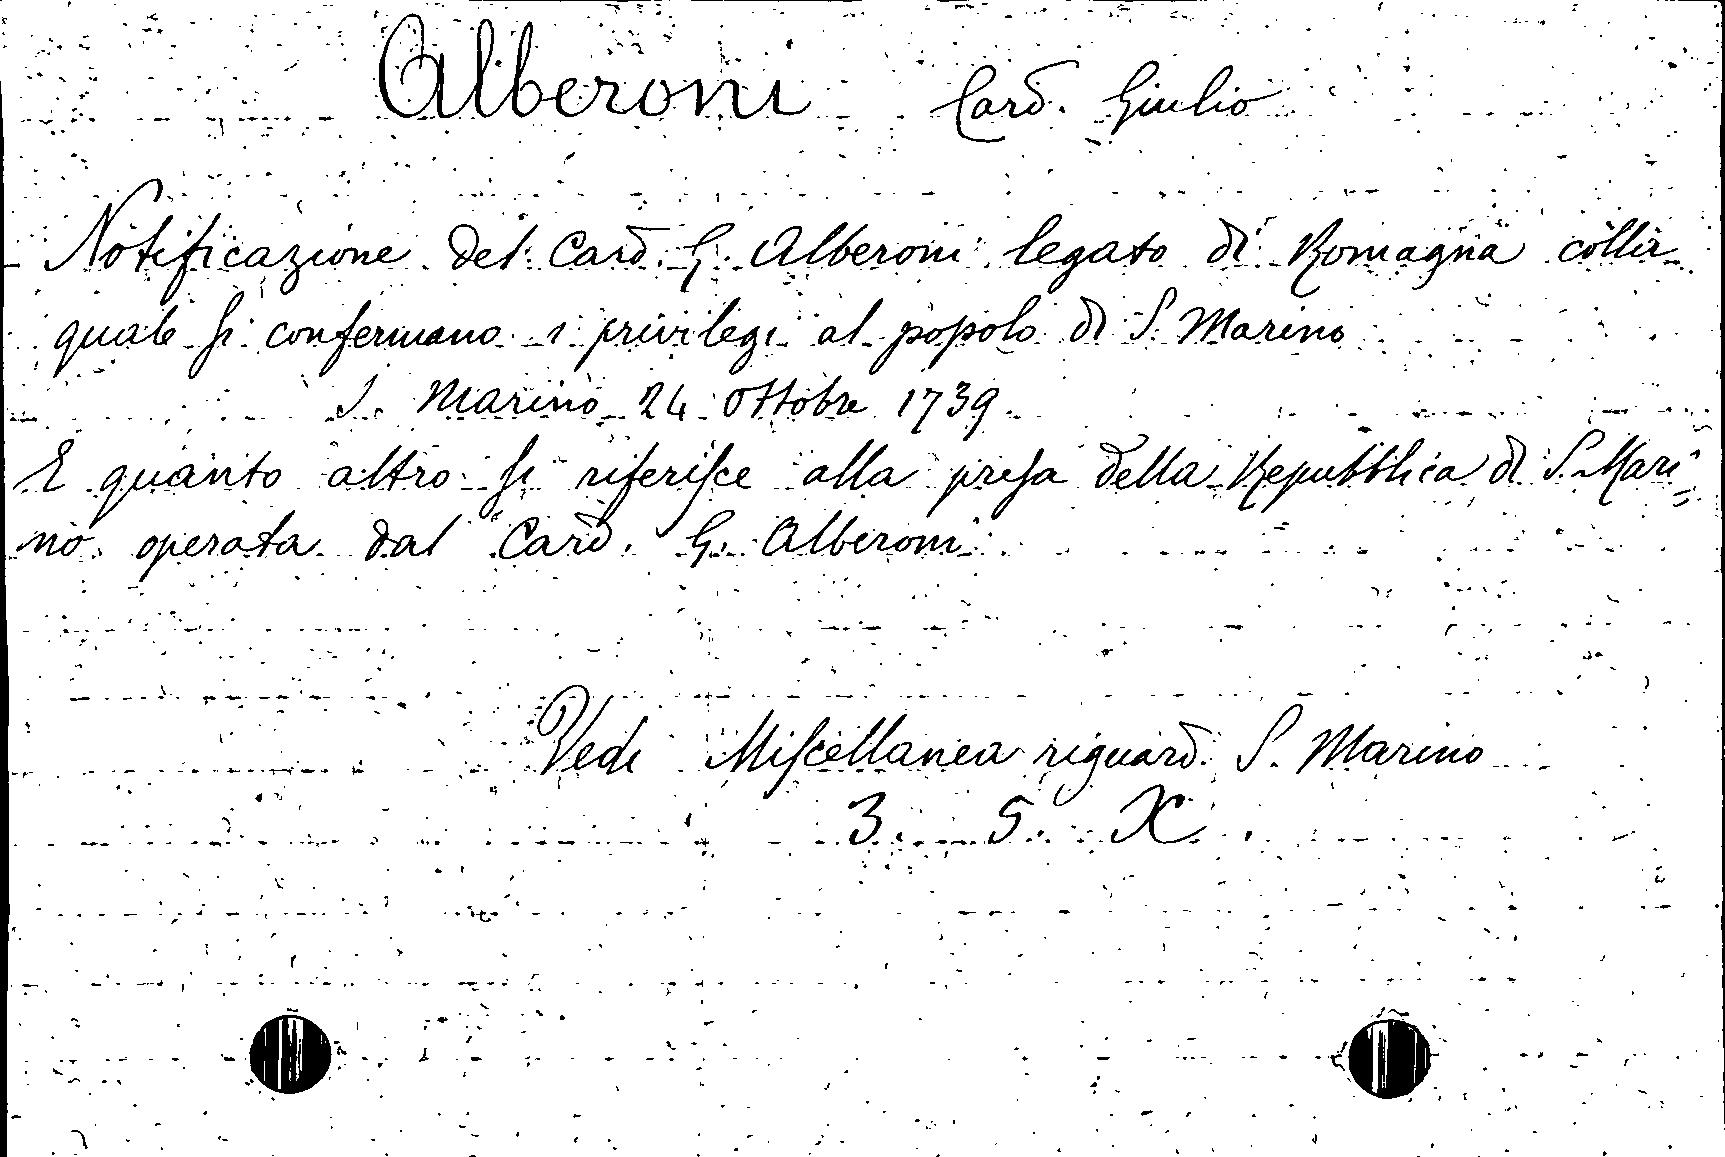 Alberoni Card. Giulio
Notificazione del Card. G. Alberoni legato di Romagna colla
quale si confermano i privilegi al popolo di S. Marino
S. Marino 24 Ottobre 1739
E quanto altro si riferisce alla presa della Repubblica di S. Mari=
no operata dal Card. G. Alberoni
Vedi Miscellanea riguard. S. Marino
3. 5. X.